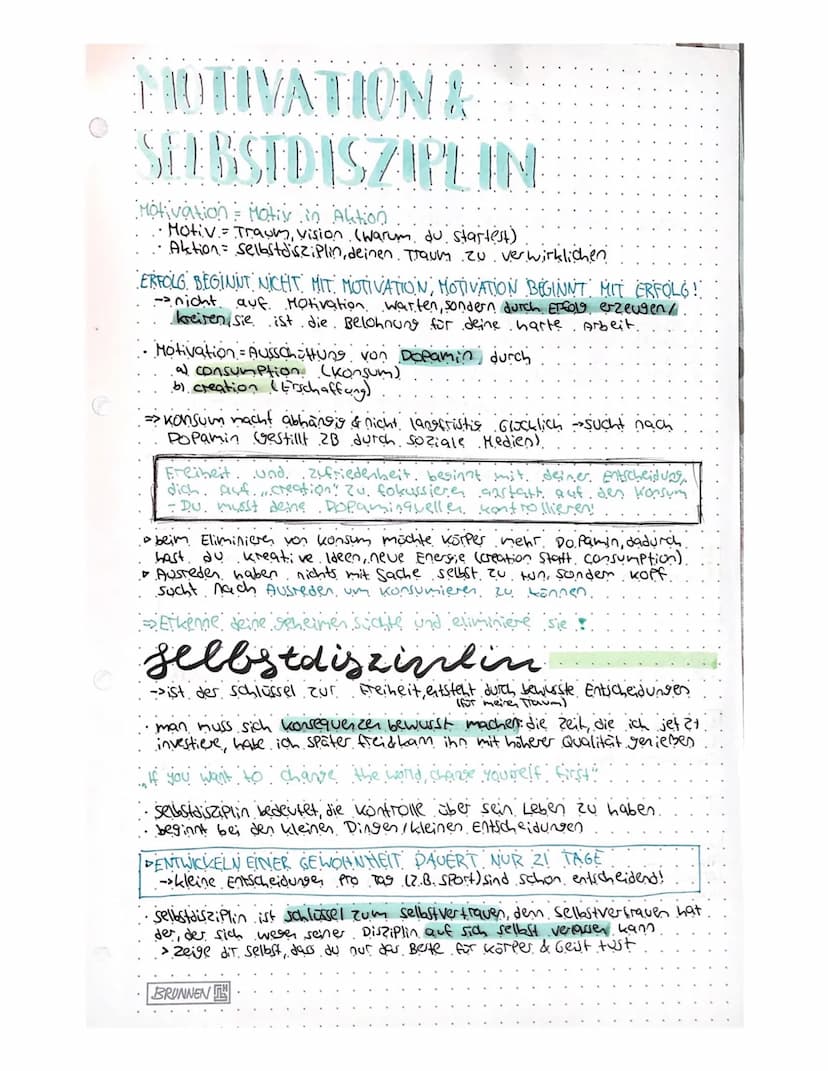 MOTIVATION &
SELBSTDISZIPLIN
Motivation = Motiv in Aktion
· Motiv = Traum, Vision (warum du startest)
· Aktion = Selbstdisziplin, deinen Traum zu verwirklichen
ERFOLG BEGINNT NICHT MIT MOTIVATION, MOTIVATION BEGINNT MIT ERFOLG!
→ nicht auf Motivation warten, sondern durch Erfolg erzeugen/
kreiren, sie ist die Belohnung für deine harte Arbeit.
· Motivation = Ausschüttung von Dopamin durch
a) consumption (Konsum)
b) creation (Erschaffung)
⇒ Konsum macht abhängig & nicht langfristig glücklich → sucht nach
Dopamin (gestillt zB durch soziale Medien)
Freiheit und Zufriedenheit beginnt mit deiner Entscheidung,
dich auf "creation" zu fokussieren anstatt auf den Konsum
- Du musst deine Dopaminquellen kontrollieren!
▹ beim Eliminieren von Konsum möchte Körper mehr Dopamin, dadurch
hast du kreative Ideen, neue Energie (creation statt consumption)
▹ Ausreden haben nichts mit Sache selbst zu tun, sondern Kopf
sucht nach Ausreden um konsumieren zu können
⇒ Erkenne deine geheimen Süchte und eliminiere sie!
Selbstdisziplin
→ ist der Schlüssel zur Freiheit, entsteht durch bewusste Entscheidungen
(für meinen Traum)
· man muss sich Konsequenzen bewusst machen: die Zeit, die ich jetzt
investiere, habe ich später frei & kann ihn mit höherer Qualität genießen
"If you want to change the world, change yourself first"
· Selbstdisziplin bedeutet, die Kontrolle über sein Leben zu haben
· beginnt bei den kleinen Dingen/kleinen Entscheidungen
▹ ENTWICKELN EINER GEWOHNHEIT DAUERT NUR 21 TAGE
→ kleine Entscheidungen pro Tag (z.B. Sport) sind schon entscheidend!
· Selbstdisziplin ist Schlüssel zum Selbstvertrauen, denn Selbstvertrauen hat
der, der sich wegen seiner Disziplin auf sich selbst verlassen kann
> zeige dir selbst, dass du nur das Beste für Körper & Geist tust
BRUNNEN